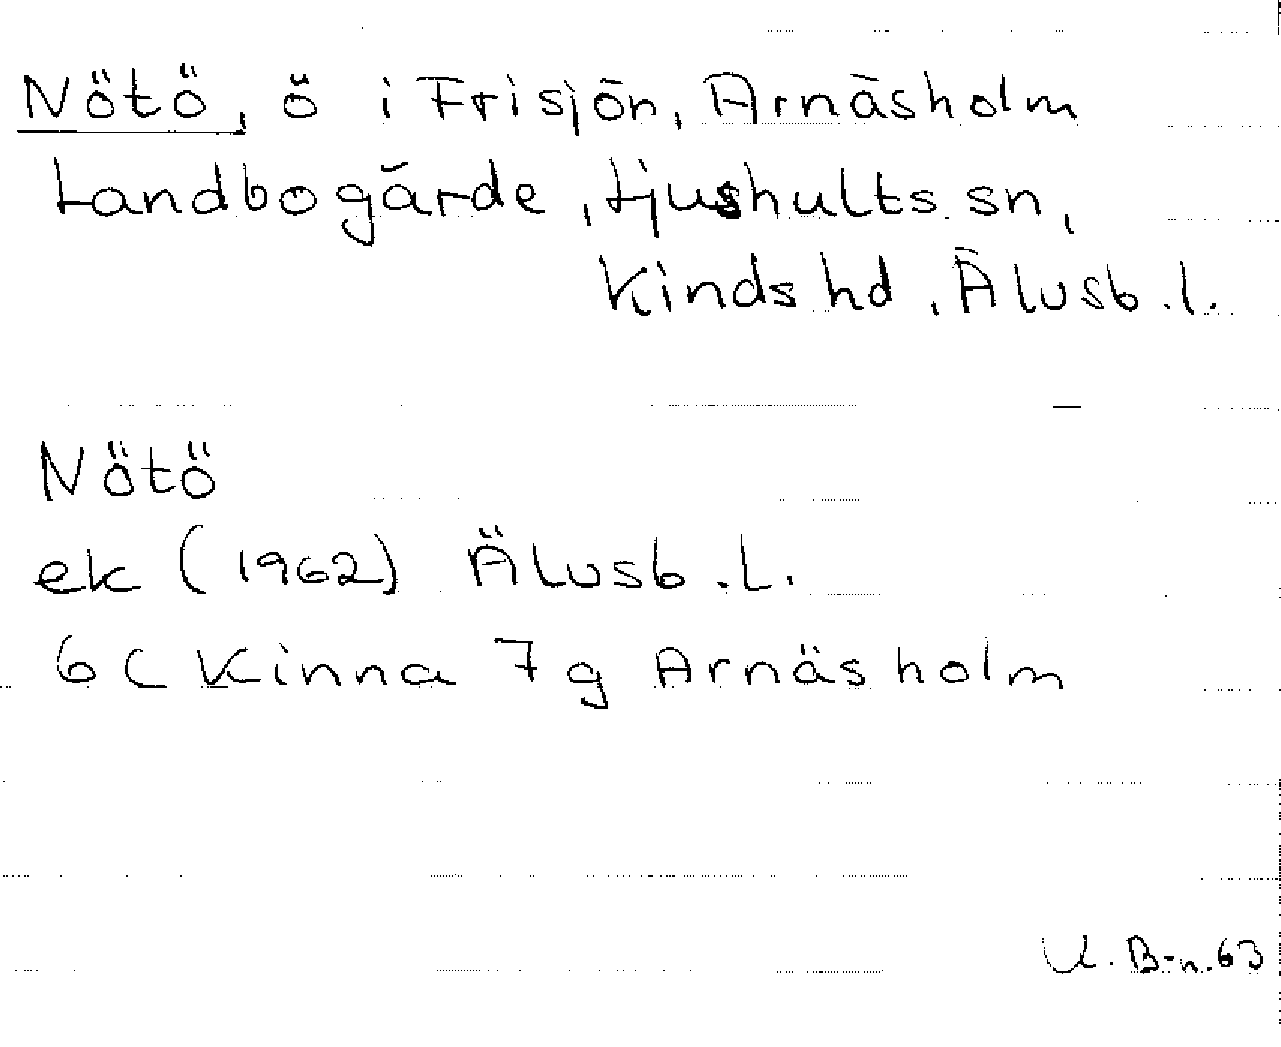 Nötö, ö i Frisjön, Arnäsholm
Landbogärde, Ljushults sn,
Kinds hd, Älvsb. l.
Nötö
ek (1962) Älvsb. L.
6C Kinna 7g Arnäsholm
U. B-n. 63